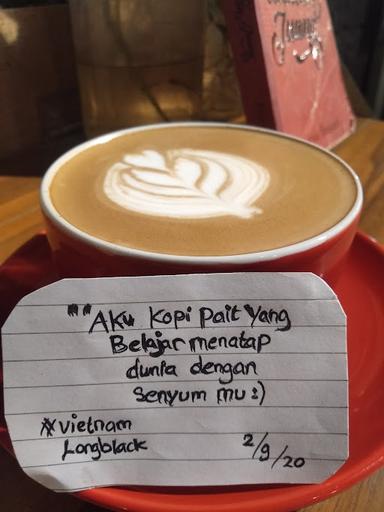 ""Aku kopi pait yang
Belajar menatap
dunia dengan
senyum mu :)
#vietnam
Longblack
2/9/20